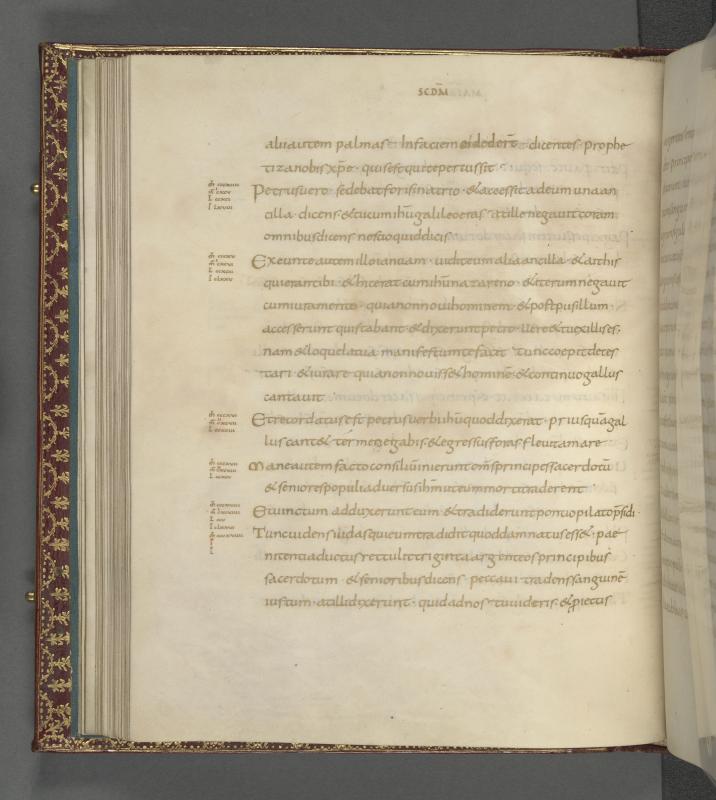 SCDM
alii autem palmas in faciem ei dedert dicentes prophe
tiza nobis xpe · quis est qui te percussit ·
Petrus uero sedebat foris in atrio · & accessit ad eum una an
cilla dicens · & tu cum ihu galileo eras · at ille negauit coram
omnibus dicens nescio quid dicis ·
Exeunte autem illo ianuam · uidit eum alia ancilla · & ait his
qui erant ibi · & hic erat cum ihu nazareno · & iterum negauit
cum iuramento · quia non noui hominem · & post pusillum ·
accesserunt qui stabant & dixerunt petro · uere & tu ex illis es ·
nam & loquela tua manifestum te facit · tunc coepit detes
tari & iurare quia non nouiss& hominē · & continuo gallus
cantauit ·
Et recordatus est petrus uerbi ihu quod dixerat · priusquā gal
lus cant& ter me negabis · & egressus foras fleuit amare
Mane autem facto consiliū inierunt oms principes sacerdotū
& seniores populi aduersus ihm ut eum morti traderent ·
Et uinctum adduxerunt eum & tradiderunt pontio pilato psidi ·
Tunc uidens iudas qui eum tradidit quod damnatus ess& · pae
nitentia ductus rettulit triginta argenteos principibus
sacerdotum & senioribus dicens · peccaui tradens sanguinē
iustum · at illi dixerunt · quid ad nos tu uideris · & piectis